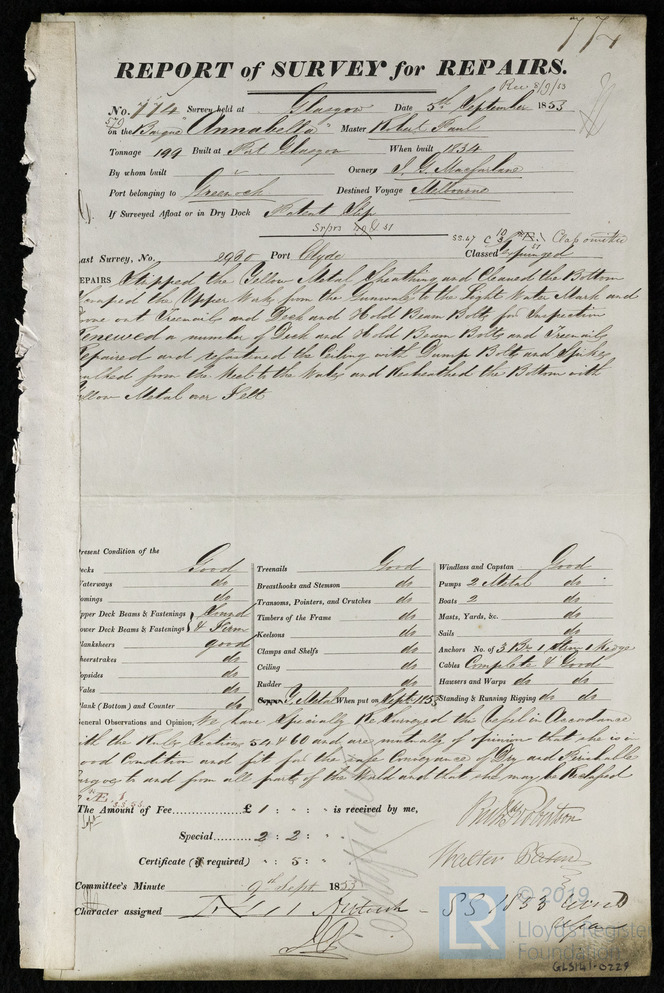 774
REPORT of SURVEY for REPAIRS.
Rec 8/9/53
No. 774 Survey held at Glasgow Date 5th September 1853
579
on the Barque "Annabella" Master Robert Paul
Tonnage 199 Built at Port Glasgow When built 1834
By whom built Owners J. G. Macfarlane
Port belonging to Greenock Destined Voyage Melbourne
If Surveyed Afloat or in Dry Dock Patent Slip
ast Survey, No. 2980 Port Clyde Classed Expunged
EPAIRS Stripped the Yellow Metal Sheathing and Cleaned the Bottom
craped the Upper Works from the Gunwale to the Light Water Mark and
ove out Treenails and Deck and Hold Beam Bolts for Inspection
enewed a number of Deck and Hold Beam Bolts and Treenails
epaired and refastened the Ceiling with Dump Bolts and Spikes
aulked from the Keel to the Water and Resheathed the Bottom with
ellow Metal over Felt
resent Condition of the
ecks Good
aterways do
omings do
pper Deck Beams & Fastenings Sound
ower Deck Beams & Fastenings & Firm
lanksheers good
heerstrakes do
opsides do
ales do
lank (Bottom) and Counter do
Treenails Good
Breasthooks and Stemson do
Transoms, Pointers, and Crutches do
Timbers of the Frame do
Keelsons do
Clamps and Shelfs do
Ceiling do
Rudder do
Y. Metal When put on Sept. 1853
Windlass and Capstan Good
Pumps 2 Metal do
Boats 2 do
Masts, Yards, &c. do
Sails do
Anchors No. of 3 Br 1 Stream 1 Kedge
Cables Complete & Good
Hawsers and Warps do do
Standing & Running Rigging do do
eneral Observations and Opinion, We have Specially Resurveyed this Vessel in Accordance
ith the Rules Sections 59 & 60 and are mutually of opinion that she is in
ood Condition and fit for the safe Conveyance of Dry and Perishable
argoes to and from all parts of the World and that she may be Reclassed
Æ 1
The Amount of Fee £ 1 : " : " is received by me,
Special 2 : 2 : "
Certificate (if required) " : 5 : "
Committee's Minute 9th Sept. 1853
Character assigned
© 2019
LR
Lloyd's Register
Foundation
GLS141-0229